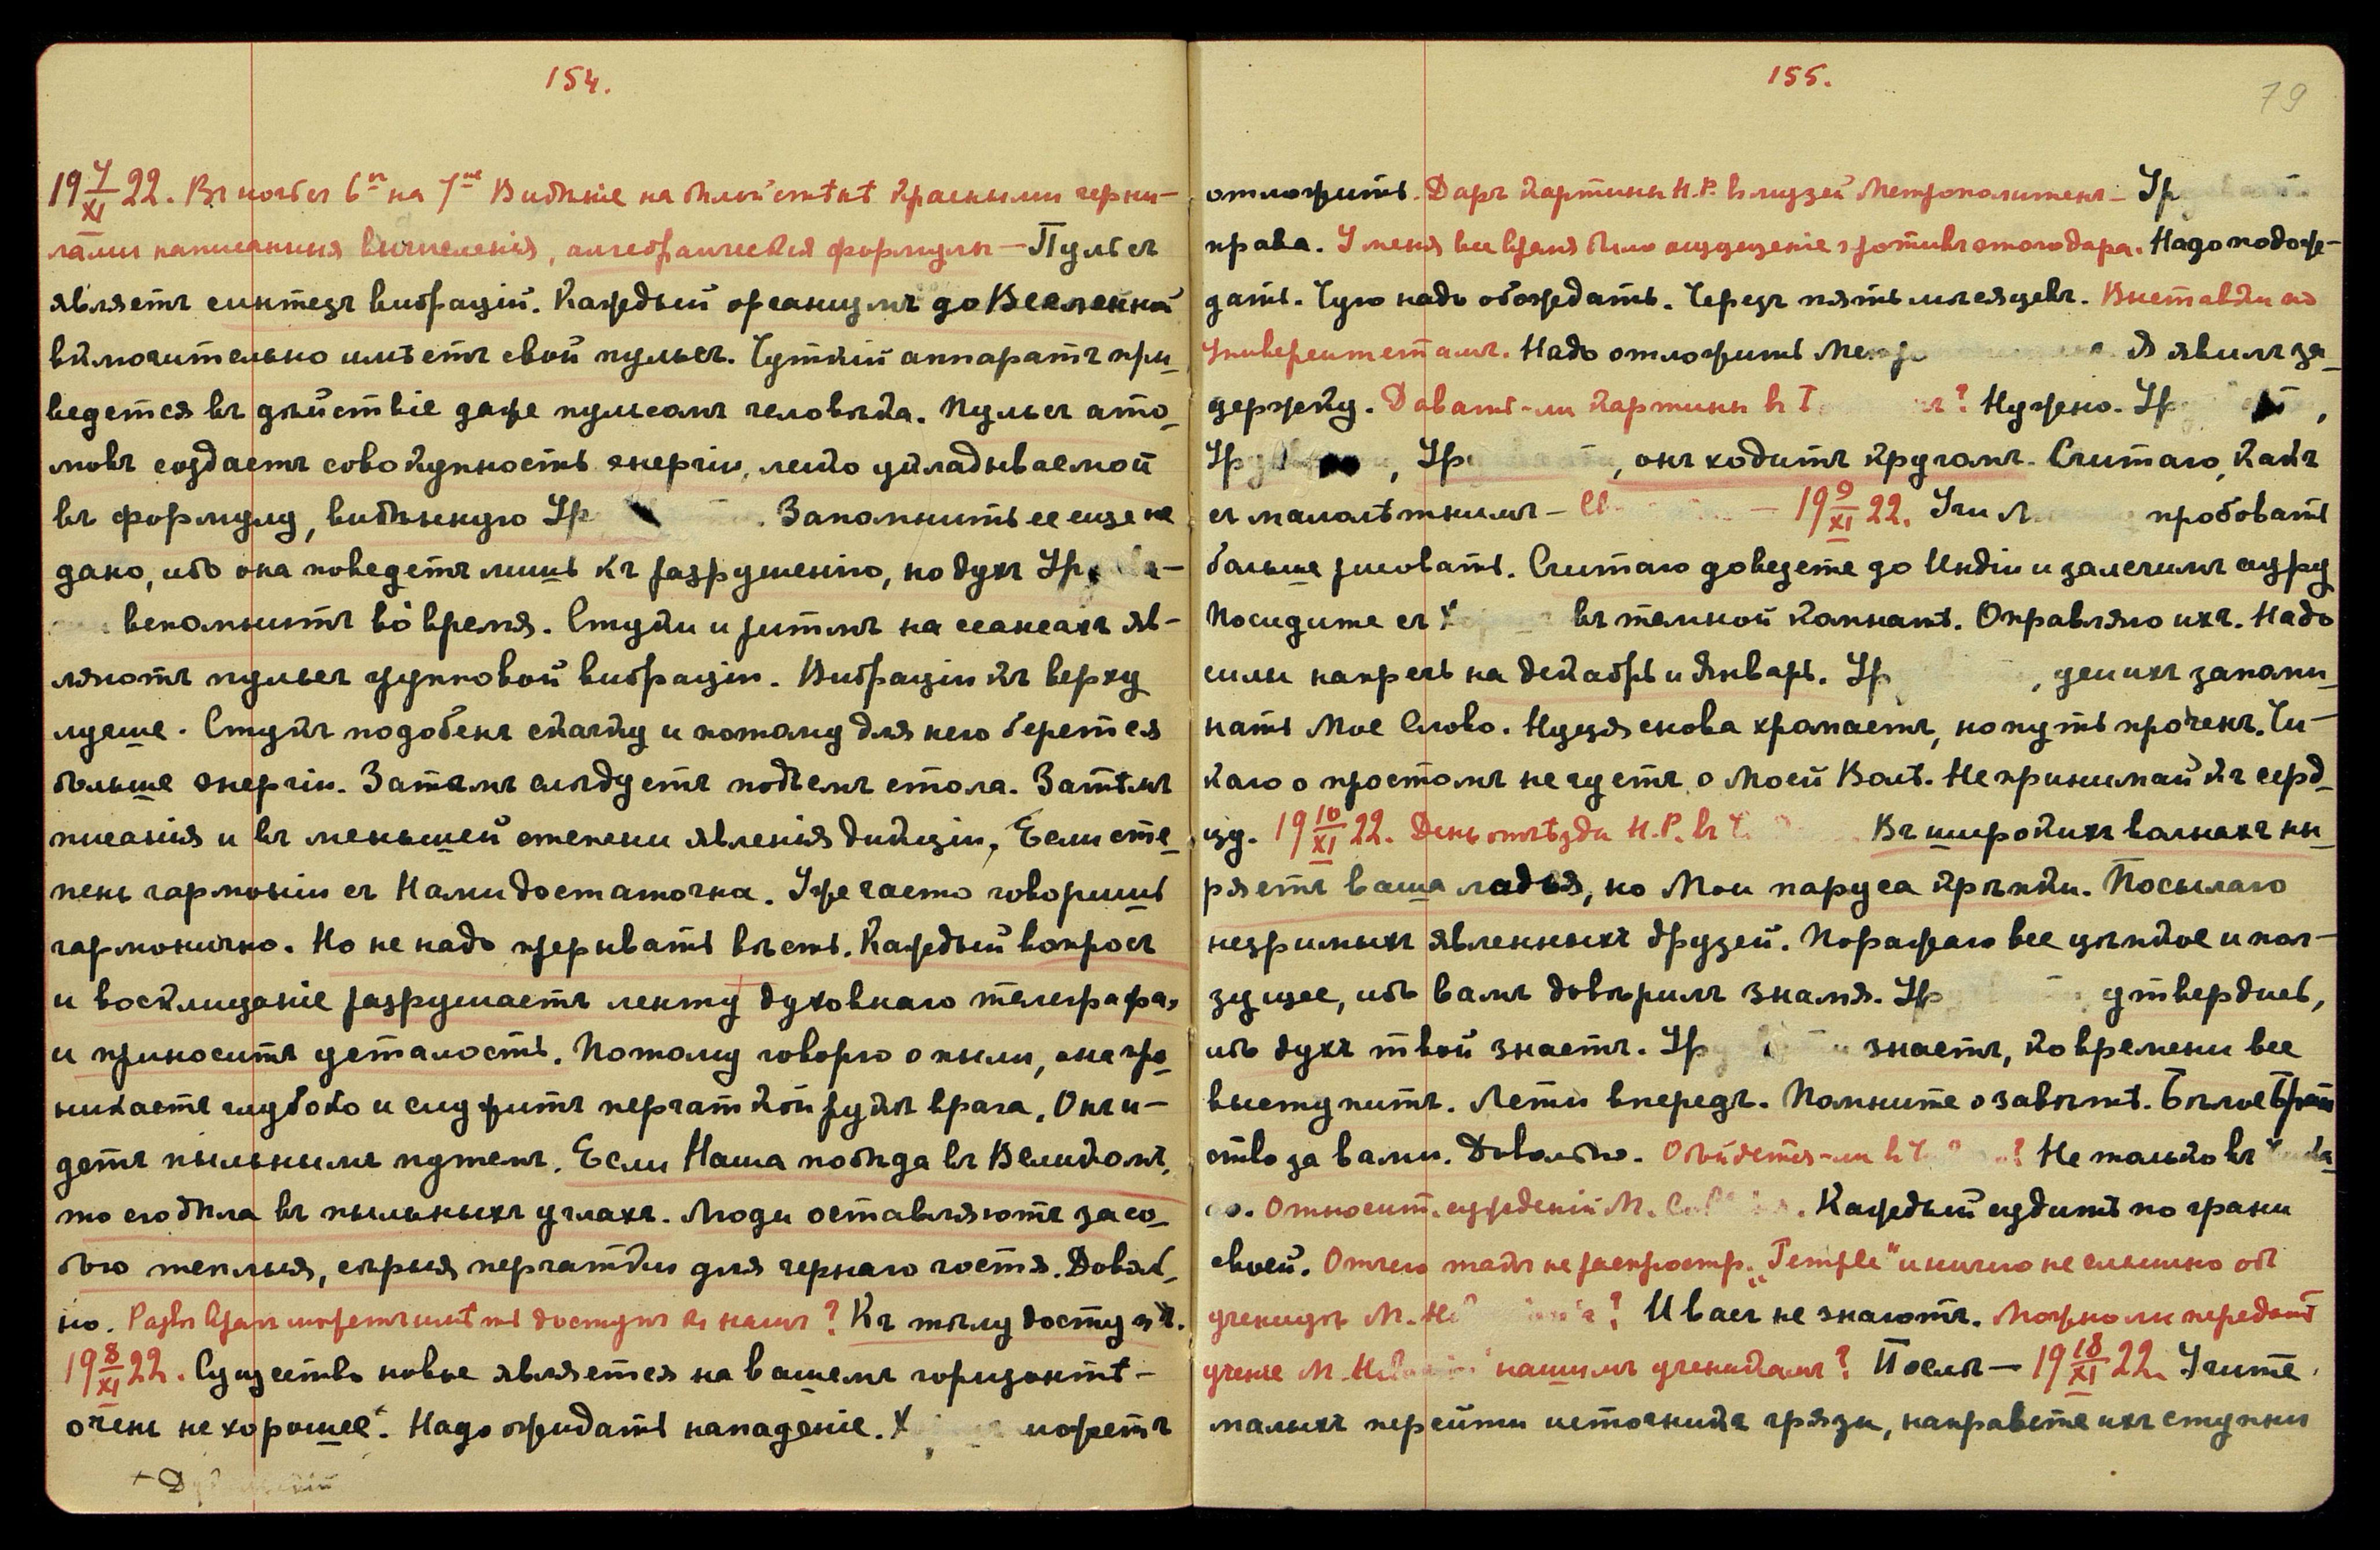 154.
19 7/XI 22. Въ ночь съ 6го на 7ое Видѣніе на бѣлой стѣнѣ красными черни-
лами написанныя вычисленія, алгебраическія формулы — Пульсъ
являетъ синтезъ вибрацій. Каждый организмъ до Вселенной
включительно имѣетъ свой пульсъ. Чуткій аппаратъ при
ведется въ дѣйствіе даже пульсомъ человѣка. Пульсъ ато
мовъ создаетъ совокупность энергіи, легко укладываемой
въ формулу, видѣнную Ур . Запомнить ее еще не
дано, ибо она поведетъ лишь къ разрушенію, но духъ Ур
вспомнитъ во время. Стуки и ритмъ на сеансахъ яв-
ляютъ пульсъ групповой вибраціи. Вибраціи къ верху
лучше. Стукъ подобенъ скачку и потому для него берется
больше энергіи. Затѣмъ слѣдуетъ подъемъ стола. Затѣмъ
писанія и въ меньшей степени явленія дикціи, Если сте
пень гармоніи съ Нами достаточна. Уже часто говоришь
гармонично. Но не надо прерывать вѣсть. Каждый вопросъ
и восклицаніе разрушаетъ ленту духовнаго телеграфа,
и приноситъ усталость. Потому говорю о пыли, она про
никаетъ глубоко и служитъ перчаткой рукѣ врага. Онъ и-
детъ пыльнымъ путемъ. Если Наша побѣда въ Великомъ,
то его дѣла въ пыльныхъ углахъ. Люди оставляютъ за со
бою теплыя, сѣрыя перчатки для чернаго гостя. Доволь
но. Развѣ врагъ можетъ имѣть доступъ къ намъ? Къ тѣлу доступъ.
19 8/XI 22. Существо новое является на вашемъ горизонтѣ —
очень не хорошее+. Надо ожидать нападеніе. Х можетъ
+ Д
155.
79
отложить. Даръ картины Н.Р. въ музей Метрополитенъ — Ур
права. У меня все время было ощущеніе противъ этого дара. Надо подож-
дать. Чую надо обождать. Черезъ пять мѣсяцевъ. Выставки по
университетамъ. Надо отложить Метро Я явилъ за
держку. Давать-ли картины въ Т ? Нужно. Ур ,
Ур , Ур , онъ ходитъ кругомъ. Считаю, какъ
съ малолѣтнимъ — 19 9/XI 22. Учи Л пробовать
больше рисовать. Считаю довезете до Индіи и залечимъ ауру
Посидите съ Х въ темной комнатѣ. Оправляю ихъ. Надо
силы напречь на декабрь и январь. Ур , учи ихъ запоми
нать Мое Слово. Нуця снова хромаетъ, но путь проченъ. Чи-
каго о простомъ не чуетъ о Моей Волѣ. Не принимай къ серд
цу. 19 10/XI 22. День отъѣзда Н.Р. въ Въ широкихъ волнахъ ны
ряетъ ваша ладья, но Мои паруса крѣпки. Посылаю
незримыхъ явленныхъ друзей. Поражаю все цѣпкое и пол-
зущее, ибо вамъ довѣрилъ знамя. Ур утвердись,
ибо духъ твой знаетъ. Ур знаетъ, ко времени все
выступитъ. Лети впередъ. Помните о завѣтѣ. Бѣлое Брат
ство за вами. Довольно. Обойдется-ли въ ? Не только въ
го. Относит. сужденій М. . Каждый судитъ по грани
своей. Отчего такъ не распростр. „Temple" и ничего не слышно объ
ученицѣ М. ? И васъ не знаютъ. Можно ли передать
ученіе М. нашимъ ученикамъ? Послѣ — 19 18/XI 22. Учите
малыхъ перейти источникъ грязи, направьте ихъ ступни